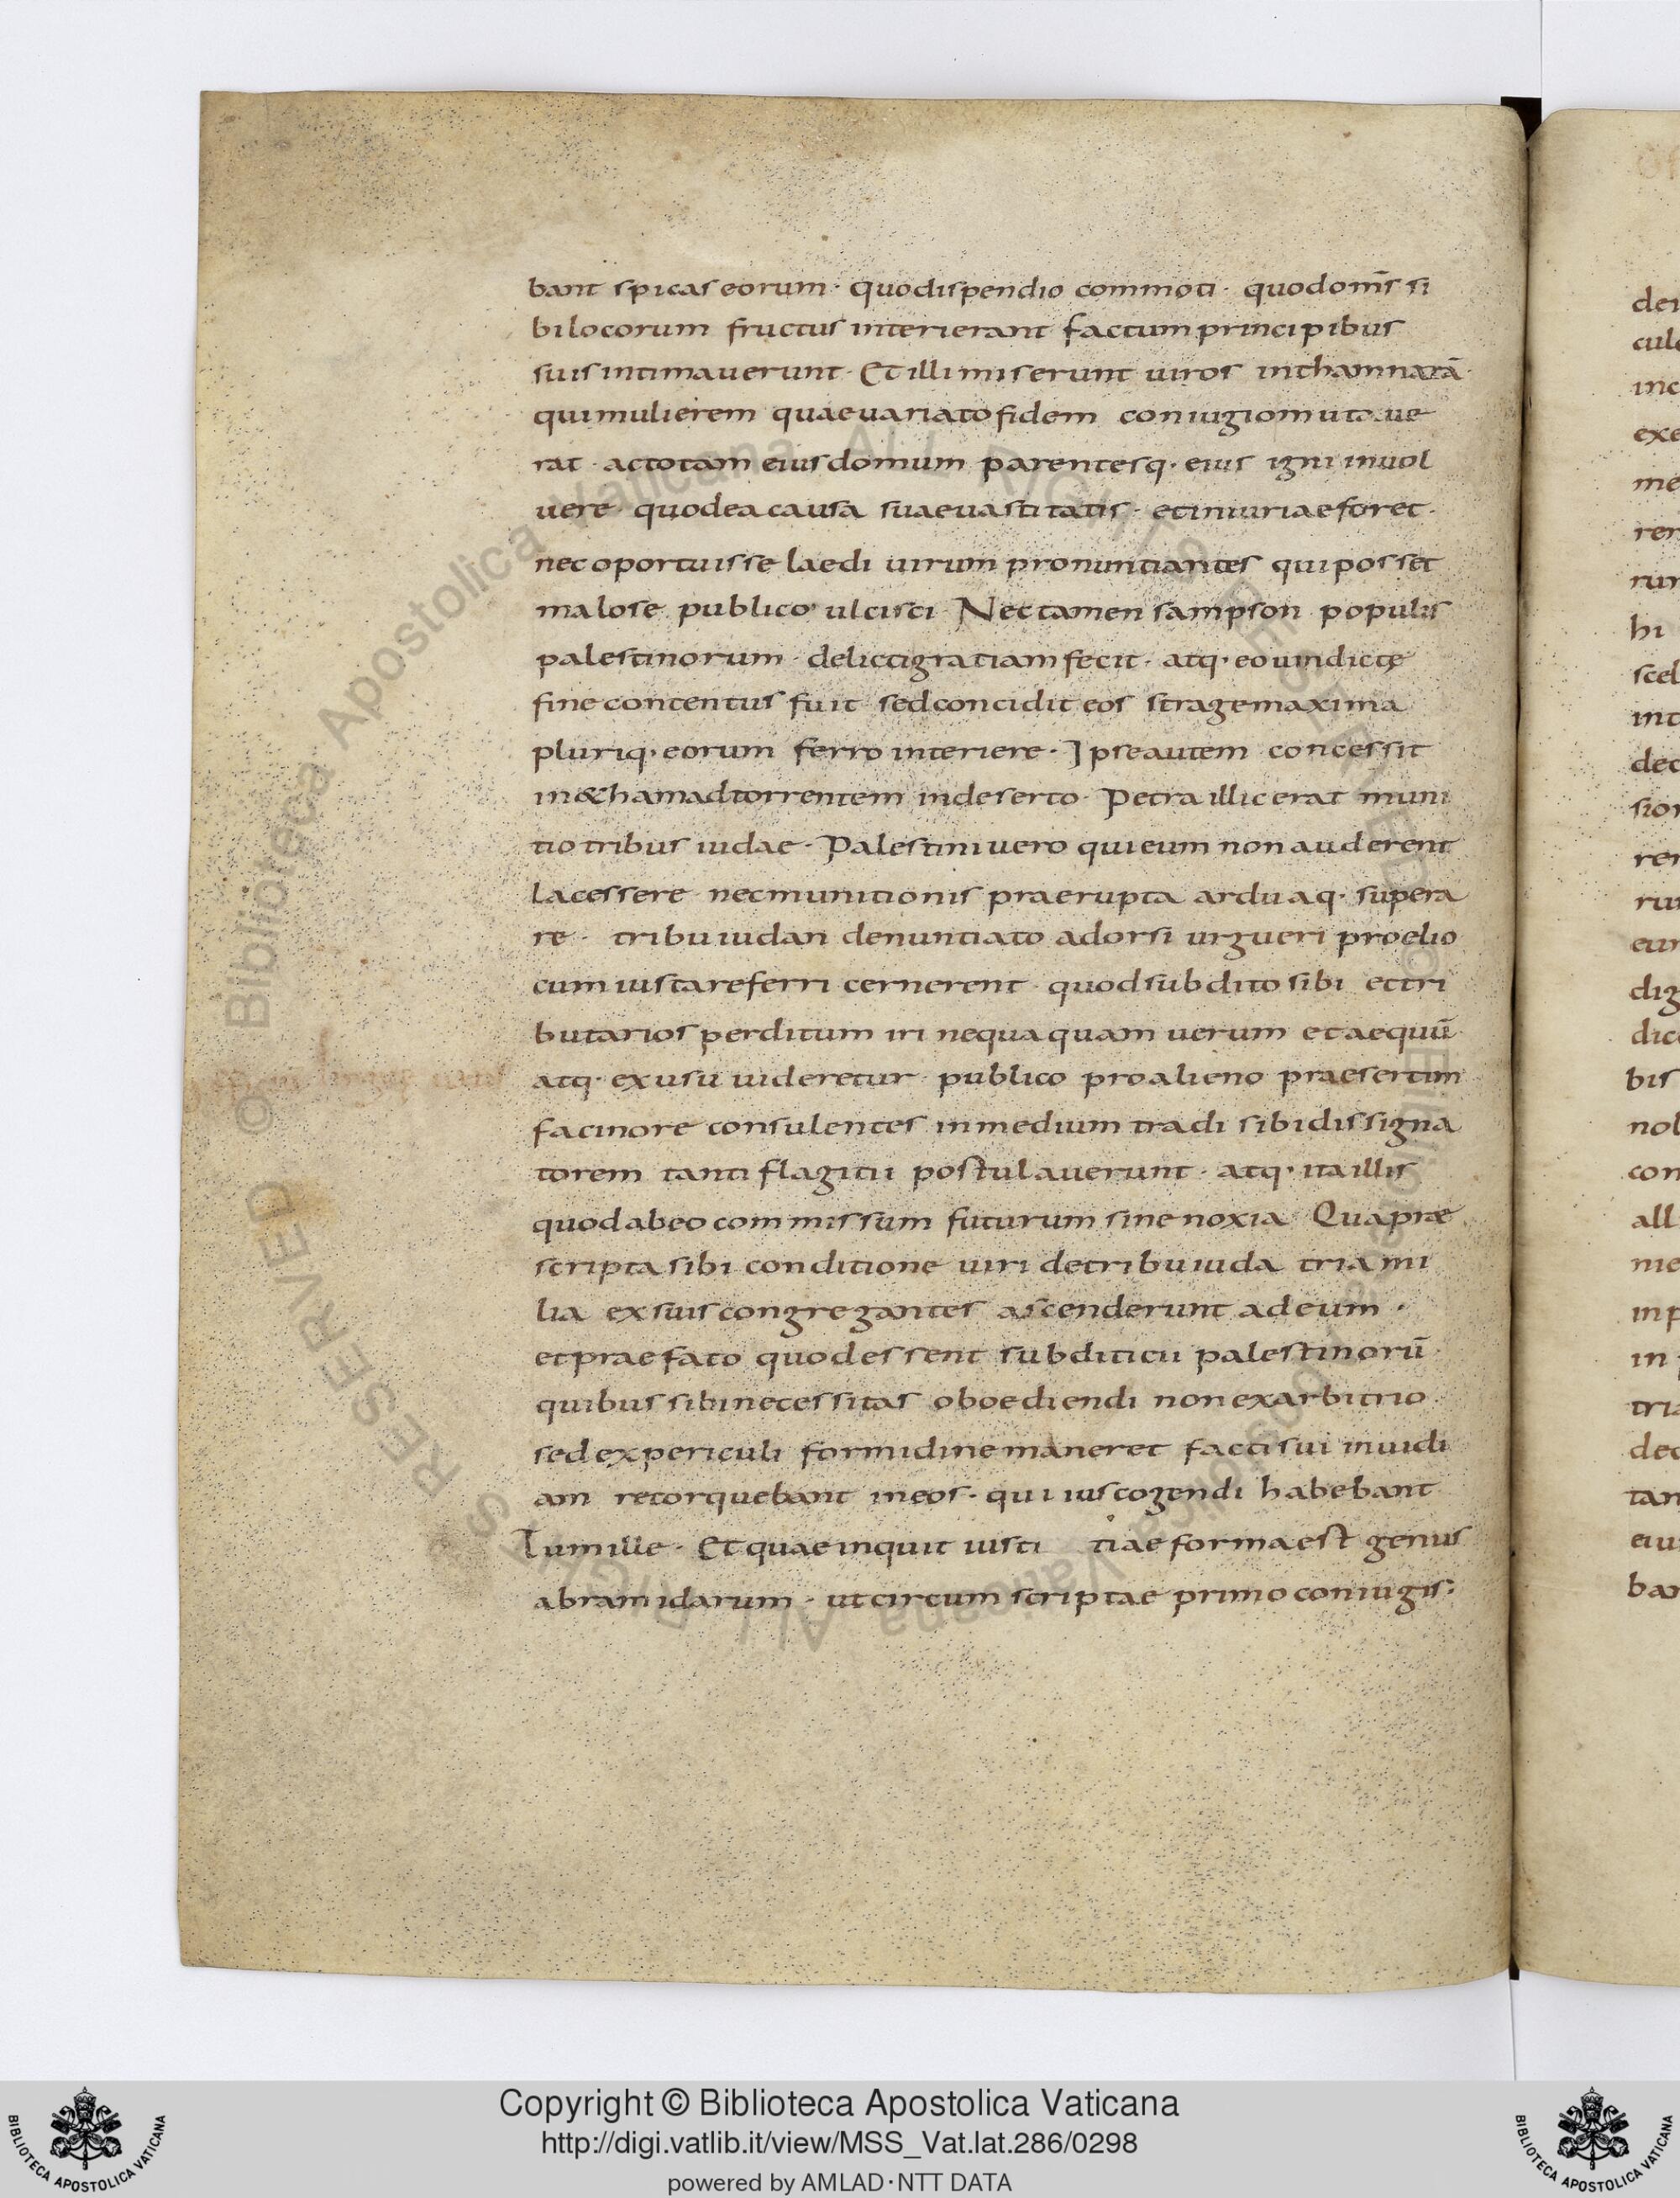 bant spicas eorum · quo dispendio commoti · quod om̄s si
bi locorum fructus interierant factum principibus
suis intimauerunt · Et illi miserunt uiros in thamnatā
qui mulierem quae uariato fidem coniugio mutaue
rat · ac totam eius domum parentesq· eius igni inuol
uere · quod ea causa suae uastitatis · et iniuriae foret ·
nec oportuisse laedi uirum pronuntiantes qui posset
malo se publico ulcisci · Nec tamen sampson populis
palestinorum · delicti gratiam fecit · atq· eo uindictę
fine contentus fuit sed concidit eos strage maxima
pluriq· eorum ferro interiere · Ipse autem concessit
in &ham ad torrentem in deserto · Petra illic erat muni
tio tribus iudae · Palestini uero qui eum non auderent
lacessere nec munitionis praerupta arduaq· supera
re · tribu iudan denuntiato adorsi urgueri proelio
cum iusta referri cernerent · quod subdito sibi et tri
butarios perditum iri nequaquam uerum et aequū
atq· ex usu uideretur publico pro alieno praesertim
facinore consulentes in medium tradi sibi dissigna
torem tanti flagitii postulauerunt · atq· ita illis
quod ab eo commissum futurum sine noxia Qua prae
scripta sibi conditione uiri de tribu iuda tria mi
lia ex suis congregantes ascenderunt ad eum ·
et praefato quod essent subditicii palestinorū
quibus sibi necessitas oboediendi non ex arbitrio
sed ex periculi formidine maneret facti sui inuidi
am retorquebant in eos · qui ius cogendi habebant
Tum ille · Et quae inquit iusti tiae forma est genus
abramidarum · ut circumscriptae primo coniugis·
Biblioteca Apostolica Vaticana
Copyright © Biblioteca Apostolica Vaticana
http://digi.vatlib.it/view/MSS_Vat.lat.286/0298
powered by AMLAD·NTT DATA
BIBLIOTECA APOSTOLICA VATICANA
BIBLIOTECA APOSTOLICA VATICANA